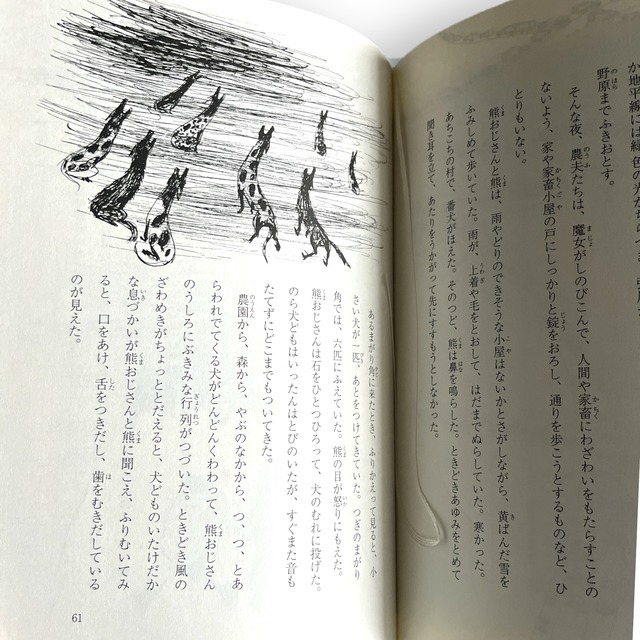 野原までふきおとす。
そんな夜、農夫たちは、魔女がしのびこんで、人間や家畜にわざわいをもたらすことの
ないよう、家や家畜小屋の戸にしっかりと錠をおろし、通りを歩こうとするものなど、ひ
とりもいない。
熊おじさんと熊は、雨やどりのできそうな小屋はないかとさがしながら、黄ばんだ雪を
ふみしめて歩いていた。雨が、上着や毛をとおして、はだまでぬらしていた。寒かった。
あちこちの村で、番犬がほえた。そのつど、熊は鼻を鳴らした。ときどきあゆみをとめて
聞き耳を立て、あたりをうかがって先にすすもうとしなかった。
あるまがり角に来たとき、ふりかえって見ると、小
さい犬が一匹、あとをつけてきていた。つぎのまがり
角では、六匹にふえていた。熊の目が怒りにもえた。
熊おじさんは石をひとつひろって、犬のむれに投げた。
のら犬どもはいったんはとびのいたが、すぐまた音も
たてずにどこまでもついてきた。
農園から、森から、やぶのなかから、つ、つ、とあ
らわれでてくる犬がどんどんくわわって、熊おじさん
のうしろにぶきみな行列がつづいた。ときどき風の
ざわめきがちょっととだえると、犬どものいたけだか
な息づかいが熊おじさんと熊に聞こえ、ふりむいてみ
ると、口をあけ、舌をつきだし、歯をむきだしている
のが見えた。
61